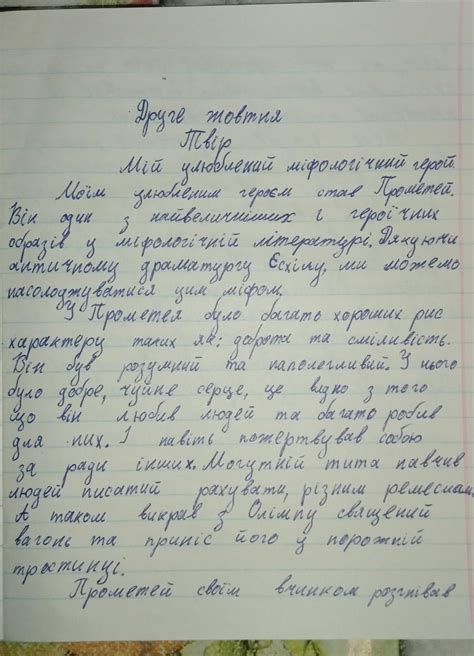 Друге жовтня
Твір
Мій улюблений міфологічний герой
Моїм улюбленим героєм став Прометей.
Він один з найвеличніших і героїчних
образів у міфологічній літературі. Дякуючи
античному драматургу Есхілу, ми можемо
насолоджуватися цим міфом.
У Прометея було багато хороших рис
характеру таких як: доброта та сміливість.
Він був розумний та наполегливий. У нього
було добре, чуйне серце, це видно з того
що він любив людей та багато робив
для них. І навіть пожертвував собою
за ради інших. Могутній тита навчив
людей писатий рахувати, різним ремеслам.
А таком викрав з Олімпу священий
вагонь та приніс його у порожній
тростинці.
Прометей своїм вчинком розгнівав